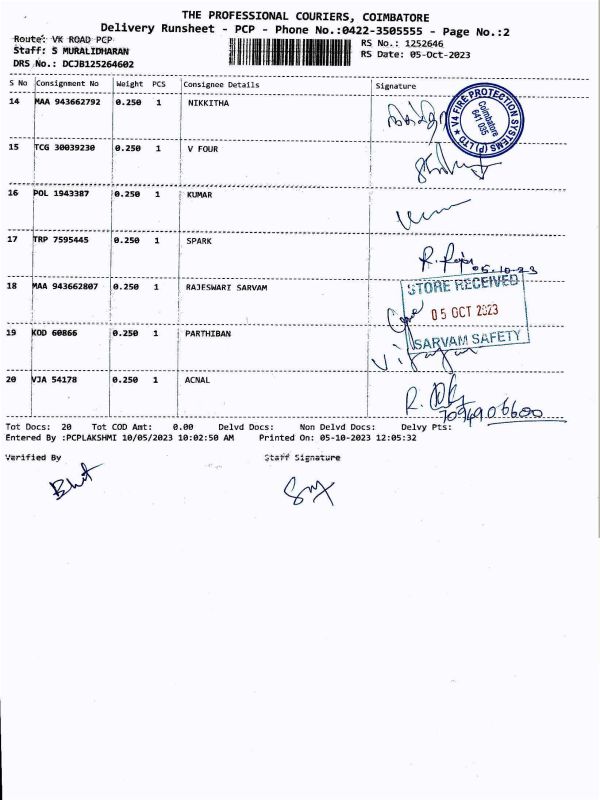 THE PROFESSIONAL COURIERS, COIMBATORE
Delivery Runsheet - PCP - Phone No.:0422-3505555 - Page No.:2
Route: VK ROAD PCP
RS No.: 1252646
Staff: S MURALIDHARAN
RS Date: 05-Oct-2023
DRS No.: DCJB125264602
S No Consignment No Weight PCS Consignee Details Signature
14 MAA 943662792 0.250 1 NIKKITHA
V4 FIRE PROTECTION SYSTEMS (P) LTD ★
Coimbatore
641 035
15 TCG 30039230 0.250 1 V FOUR
16 POL 1943387 0.250 1 KUMAR
17 TRP 7595445 0.250 1 SPARK
05-10-23
18 MAA 943662807 0.250 1 RAJESWARI SARVAM
STORE RECEIVED
05 OCT 2023
SARVAM SAFETY
19 KOD 60866 0.250 1 PARTHIBAN
20 VJA 54178 0.250 1 ACNAL
7094906600
Tot Docs: 20 Tot COD Amt: 0.00 Delvd Docs: Non Delvd Docs: Delvy Pts:
Entered By :PCPLAKSHMI 10/05/2023 10:02:50 AM Printed On: 05-10-2023 12:05:32
Verified By Staff Signature